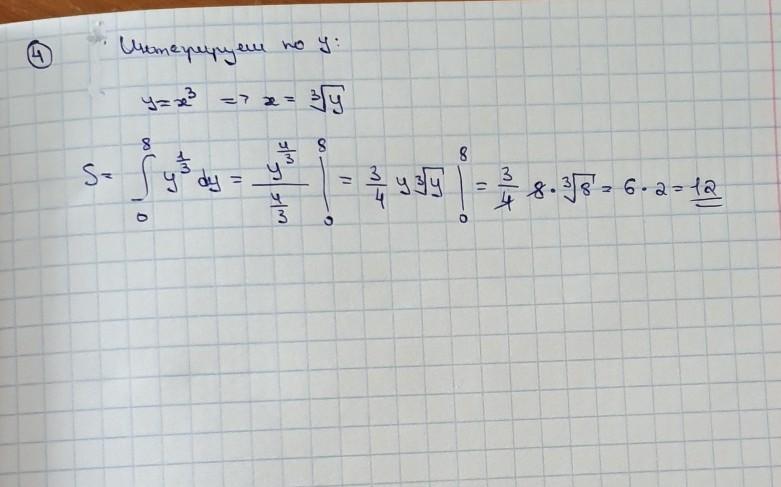 ④ Интегрируем по y:
y=x³ => x = ∛y
S = ∫₀⁸ y^{1/3} dy = y^{4/3} / (4/3) |₀⁸ = 3/4 y∛y |₀⁸ = 3/4 8·∛8 = 6·2 = 12